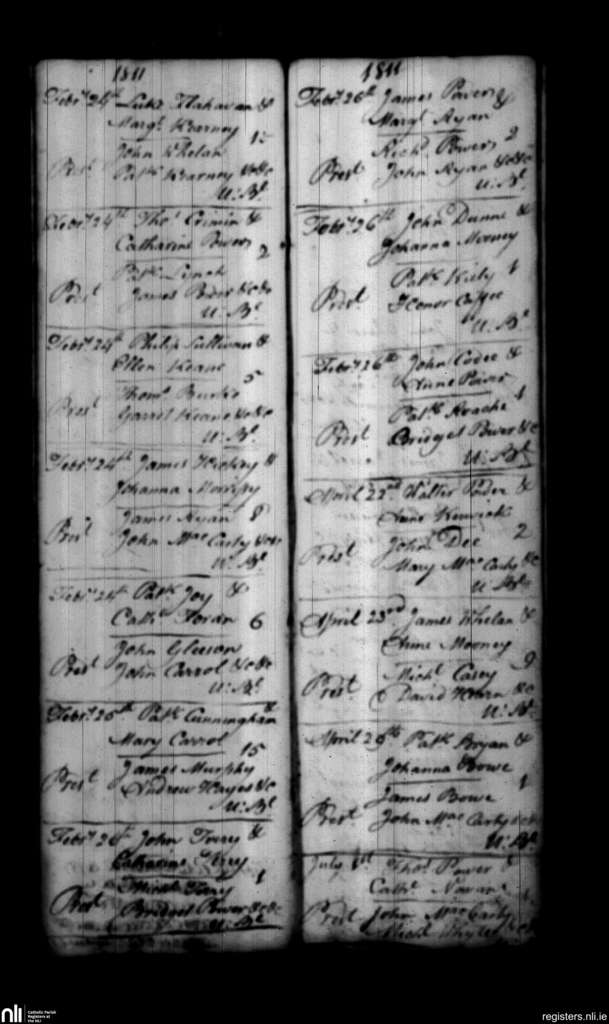 1811
Febry 24th Luke Flahavan &
Margt Kearney
John Whelan
Prest Patk Kearney &c &c
W: Bt
Febry 24th Thos Crimin &
Catharine Power 2
Patk Lynch
Prest James Power &c &c
W: Bt
Febry 24th Philip Sullivan &
Ellen Keane
Thoms Burke 5
Prest Garret Keane &c &c
W: Bt
Febry 24th James Hickey &
Johanna Morrissy
James Ryan 8
Prest John Mac Carty &c &c
W: Bt
Febry 24th Patk Joy &
Cathe Foran 6
John Gleeson
Prest John Carrol &c &c
W: Bt
Febry 25th Patk Cunningham &
Mary Carrol
James Murphy 15
Prest Andrew Hayes &c
W: Bt
Febry 26th John Torry &
Catharine Terry
Torry 1
Prest Bridget Power &c &c
W: Bt
1811
Febry 26th James Power &
Margt Ryan
Richd Power 2
Prest John Ryan &c &c
W: Bt
Febry 26th John Dunne &
Johanna Mooney
Patk Kiely 1
Prest Honor
W: Bt
Febry 26th John Codee &
Anne Power
Patk Roache 1
Prest Bridget Power &c
W: Bt
April 22nd Walter &
Anne
John Dee 2
Prest Mary Mac Carty &c
W: Bt
April 23rd James Whelan &
Anne Mooney
Michl Casey 9
Prest David Hearn &c
W: Bt
April 29th Patk Bryan &
Johanna Bowe
James Bowe 1
Prest John Mac Carty &c &c
W: Bt
July 1st Thos Power &
Cathe
Prest John Mac Carty
Michl Whyte &c
nli Catholic Parish
Registers at
the NLI
registers.nli.ie